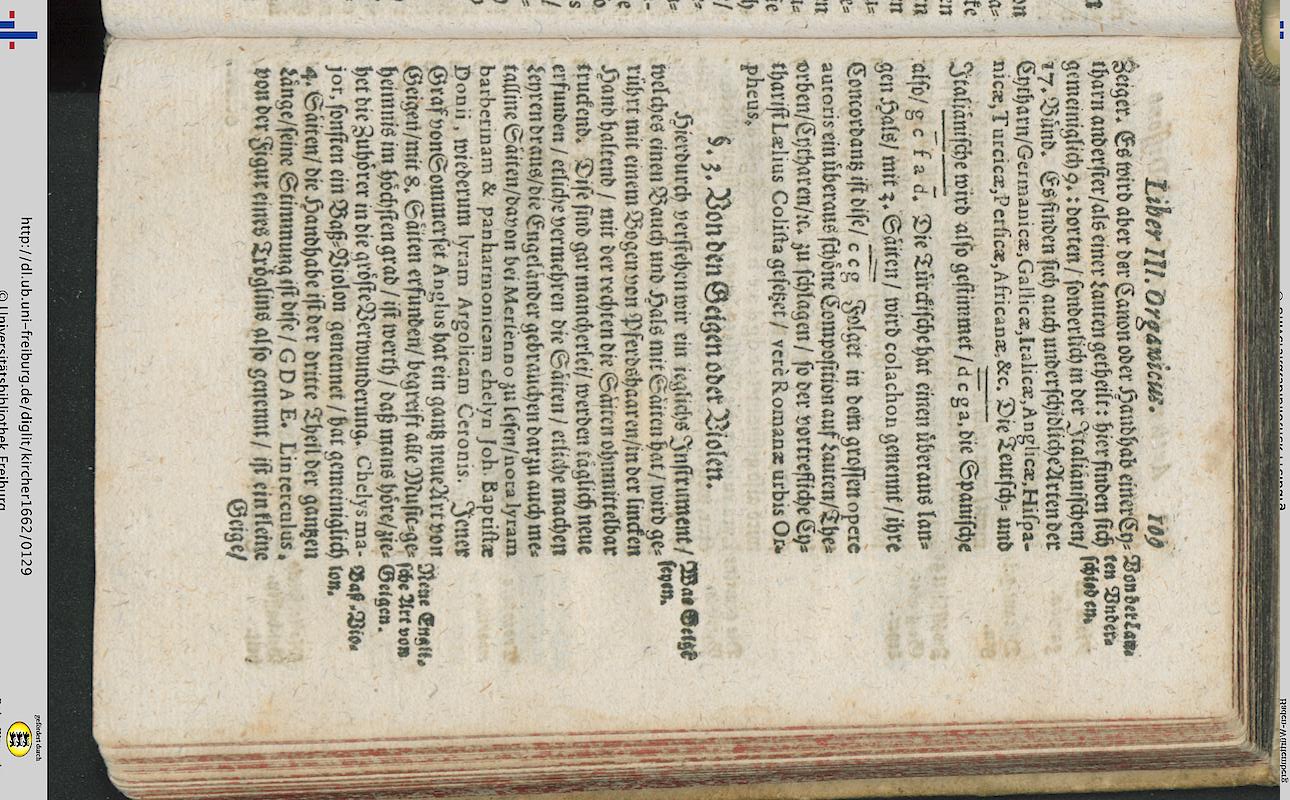 Liber III. Organicus. 109
Zeiger. Es wird aber der Canon oder Handhab einer Cy-
tharn anderster/als einer Lauten getheilt: hier finden sich
gemeiniglich 9. : dorten / sonderlich in der Italianischen/
17. Bünd. Es finden sich auch underschidliche Arten der
Cytharn/Germanicæ, Gallicæ, Italicæ, Anglicæ, Hispa-
nicæ, Turcicæ, Persicæ, Africanæ, &c. Die Teutsch- und
Italiänische wird also gestimmet / d c g a. die Spanische
also/ g c f a d. Die Türckische hat einen überaus lan-
gen Hals/ mit 3. Säiten/ wird colachon genennt / ihre
Concordantz ist dise/ c c g Folget in dem grossen opere
autoris ein überaus schöne Composition auf Lauten/The-
orben/Cytharen/rc. zu schlagen/ so der vortrefliche Cy-
tharist Lælius Colista gesetzet / verè Romanæ urbis Or-
pheus.
Von der Lau-
ten Under-
schid en.
§. 3. Von den Geigen oder Violen.
Hierdurch verstehen wir ein iegliches Instrument /
welches einen Bauch und Hals mit Säiten hat / wird ge-
rührt mit einem Bogen von Pferdshaaren/in der lincken
Hand haltend / mit der rechten die Säiten ohnmittelbar
truckend. Dise sind gar mancherlei/ werden täglich neue
erfunden / etliche vermehren die Säiten / etliche machen
Leyren draus/die Engeländer gebrauchen darzu auch me-
talline Säiten/davon bei Mersenno zu lesen/nota lyram
barberinam & panharmonicam chelyn Joh. Baptistæ
Donii, wiederum lyram Argolicam Ceronis. Jener
Graf von Sommerset Anglus hat ein gantz neue Art von
Geigen/mit 8. Säiten erfunden/ begreift alle Music-ge-
heimnis im höchsten grad / ist werth / daß mans höre/zie-
het die Zuhörer in die gröste Verwunderung. Chelys ma-
jor, sonsten ein Baß-Violon genennet / hat gemeiniglich
4. Säiten/ die Handhabe ist der dritte Theil der gantzen
Länge/seine Stimmung ist dise / G D A E. Lintercu­lus,
von der Figur eines Trögleins also genennt / ist ein kleine
Geige/
Was Geige
seyen.
Neue Engli-
sche Art von
Geigen.
Baß-Vio-
lon.
http://dl.ub.uni-freiburg.de/diglit/kircher1662/0129
© Universitätsbibliothek Freiburg
gefördert durch